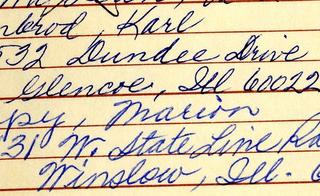 nbrod, Karl
532 Dundee Drive
Glencoe, Ill 60022
py, Marion
31 W. State Line Ra
Winslow, Ill. 6